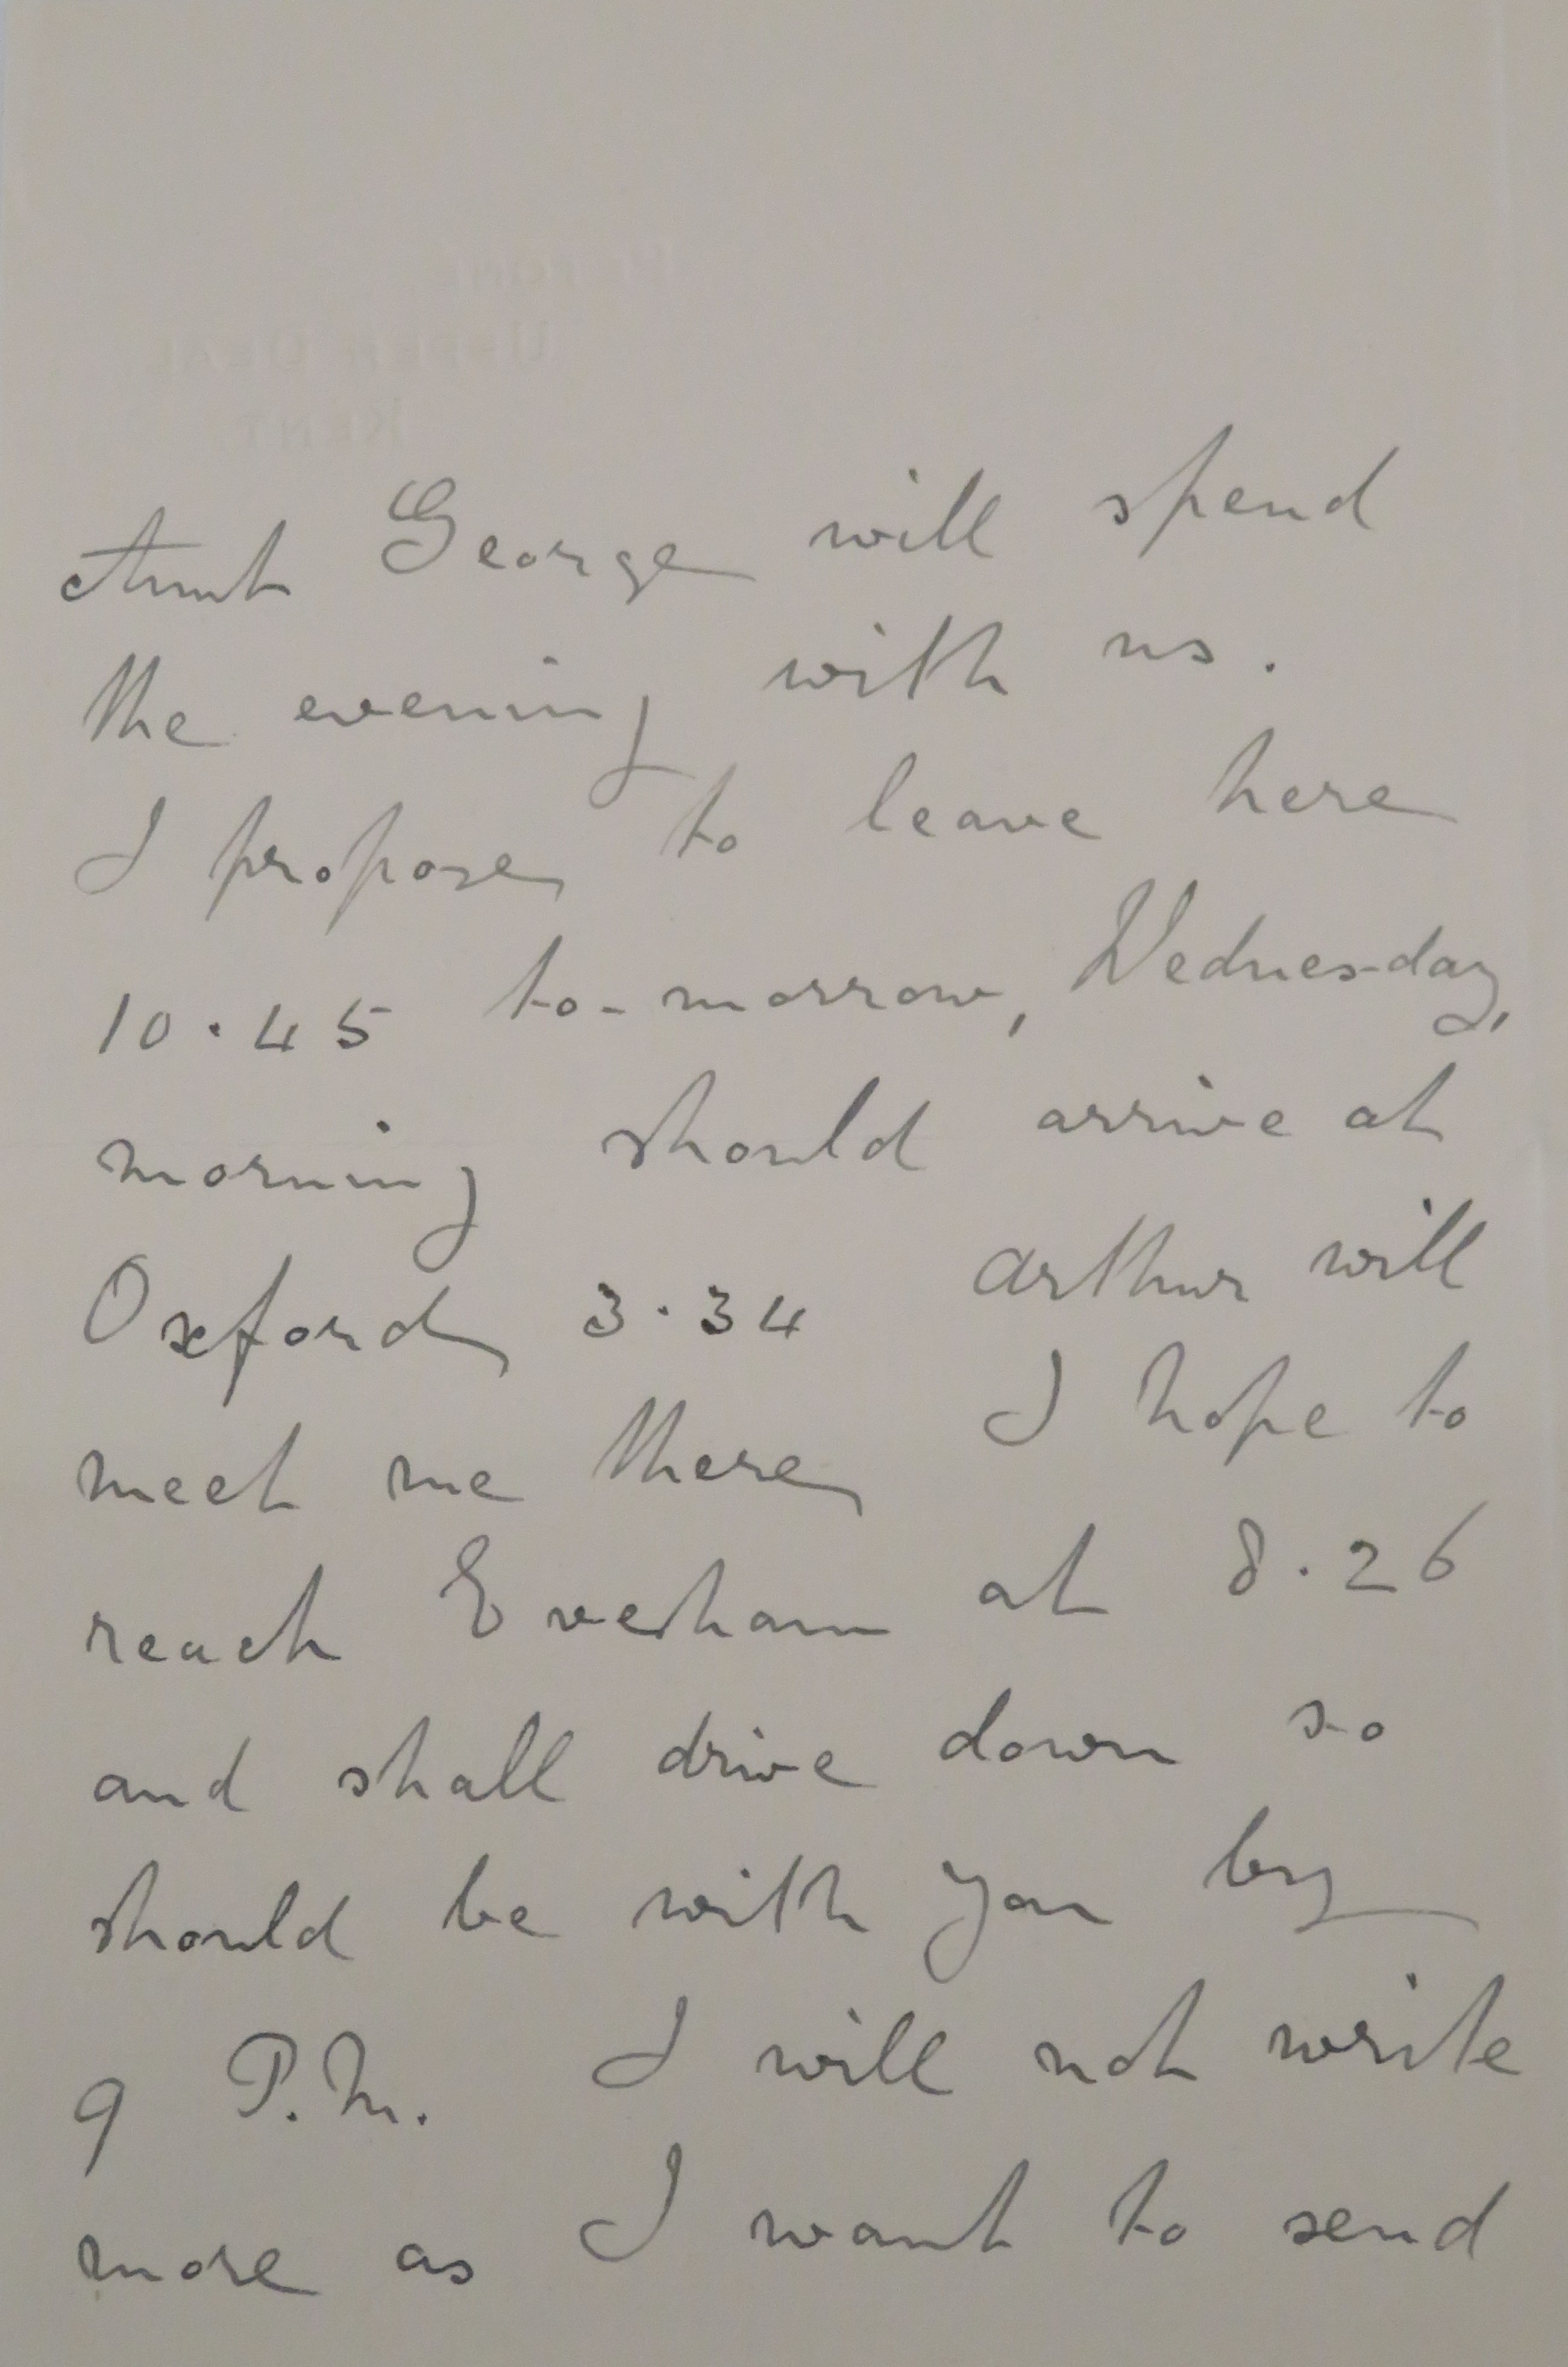 UPPER DEAL
KENT.
Aunt George will spend
the evening with us.
I propose to leave here
10.45 to-morrow, Wednesday,
morning should arrive at
Oxford 3.34 Arthur will
meet me there I hope to
reach Evesham at 8.26
and shall drive down so
should be with you by
9 P.M. I will not write
more as I want to send